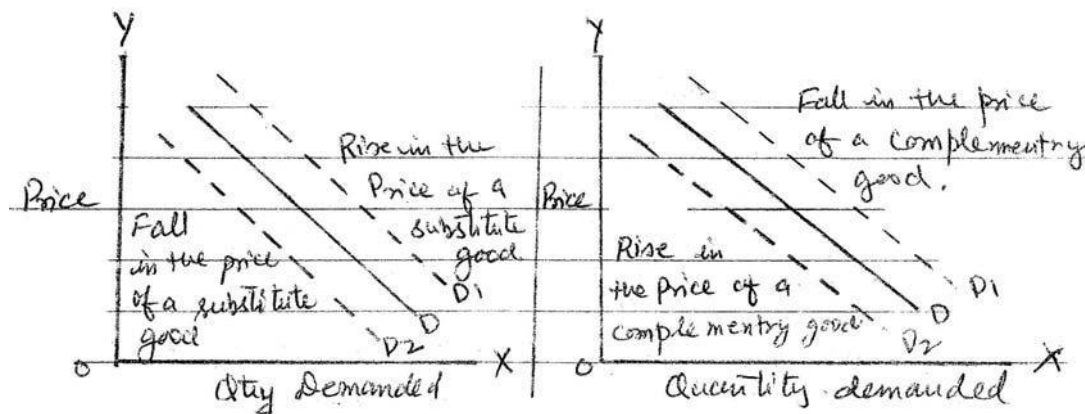 Y
Rise in the
Price of a
substitute
good
Price
Fall
in the price
of a substitute
good
D1
D
D2
O
X
Qty Demanded
Y
Fall in the price
of a complementry
good.
Price
Rise in
the Price of a
complementry good
D1
D
D2
O
X
Quantity demanded